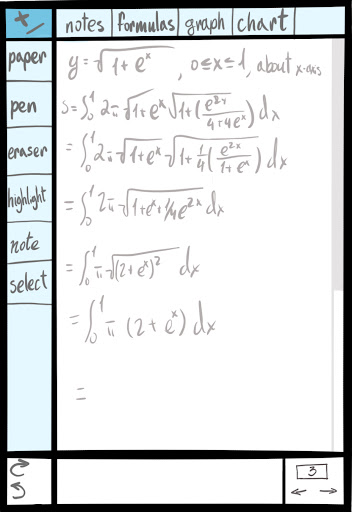 +/- notes formulas graph chart
paper
pen
eraser
highlight
note
select
y = √(1 + eˣ) , 0 ≤ x ≤ 1, about x-axis
S = ∫₀¹ 2π √(1 + eˣ) √(1 + (e²ˣ / (4 + 4eˣ))) dx
= ∫₀¹ 2π √(1 + eˣ) √(1 + 1/4 (e²ˣ / (1 + eˣ))) dx
= ∫₀¹ 2π √(1 + eˣ + 1/4 e²ˣ) dx
= ∫₀¹ π √((2 + eˣ)²) dx
= ∫₀¹ π (2 + eˣ) dx
=
3
← →